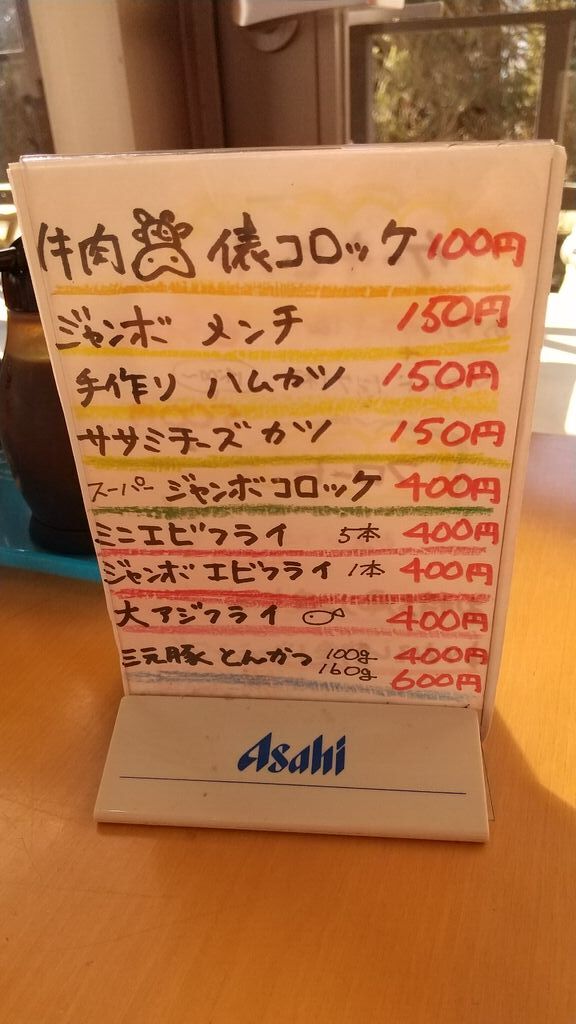 牛肉 俵コロッケ 100円
ジャンボ メンチ 150円
手作り ハムカツ 150円
ササミチーズカツ 150円
スーパー ジャンボコロッケ 400円
ミニエビフライ 5本 400円
ジャンボ エビフライ 1本 400円
大アジフライ 400円
三元豚 とんかつ 100g 400円
160g 600円
Asahi